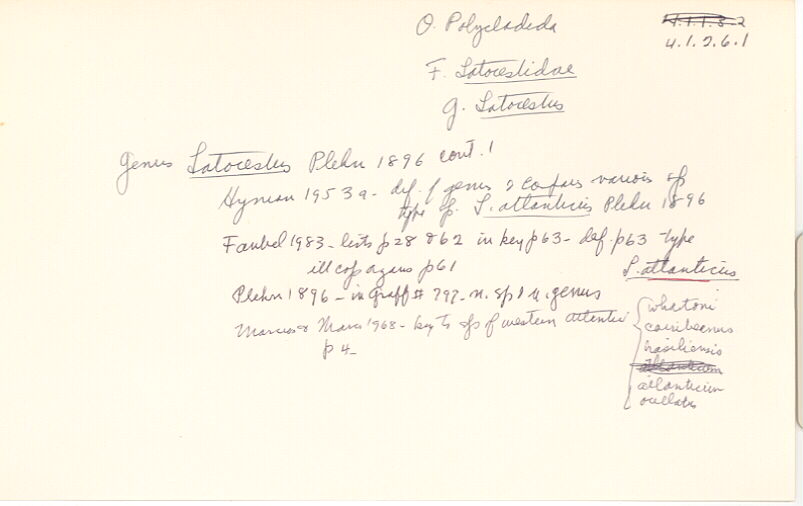 O. Polycladida
4.1.1.3.2
4.1.2.6.1
F. Latocestidae
G. Latocestus
Genus Latocestus Plehn 1896 cont.'
Hyman 1953a - def. of genus & compares various sp
type sp. L. atlanticus Plehn 1896
Faubel 1983 - lists p28 & 62 in key p63 - def. p63 - type
ill cop organs p61
L. atlanticus
Plehn 1896 - in Graff # 797 - n. sp & n. genus
Marcus & Marcus 1968 - key to sp of western Atlantic
p 4 -
whatoni
caribbeanus
brasiliensis
atlanticum
atlanticum
ocellatus